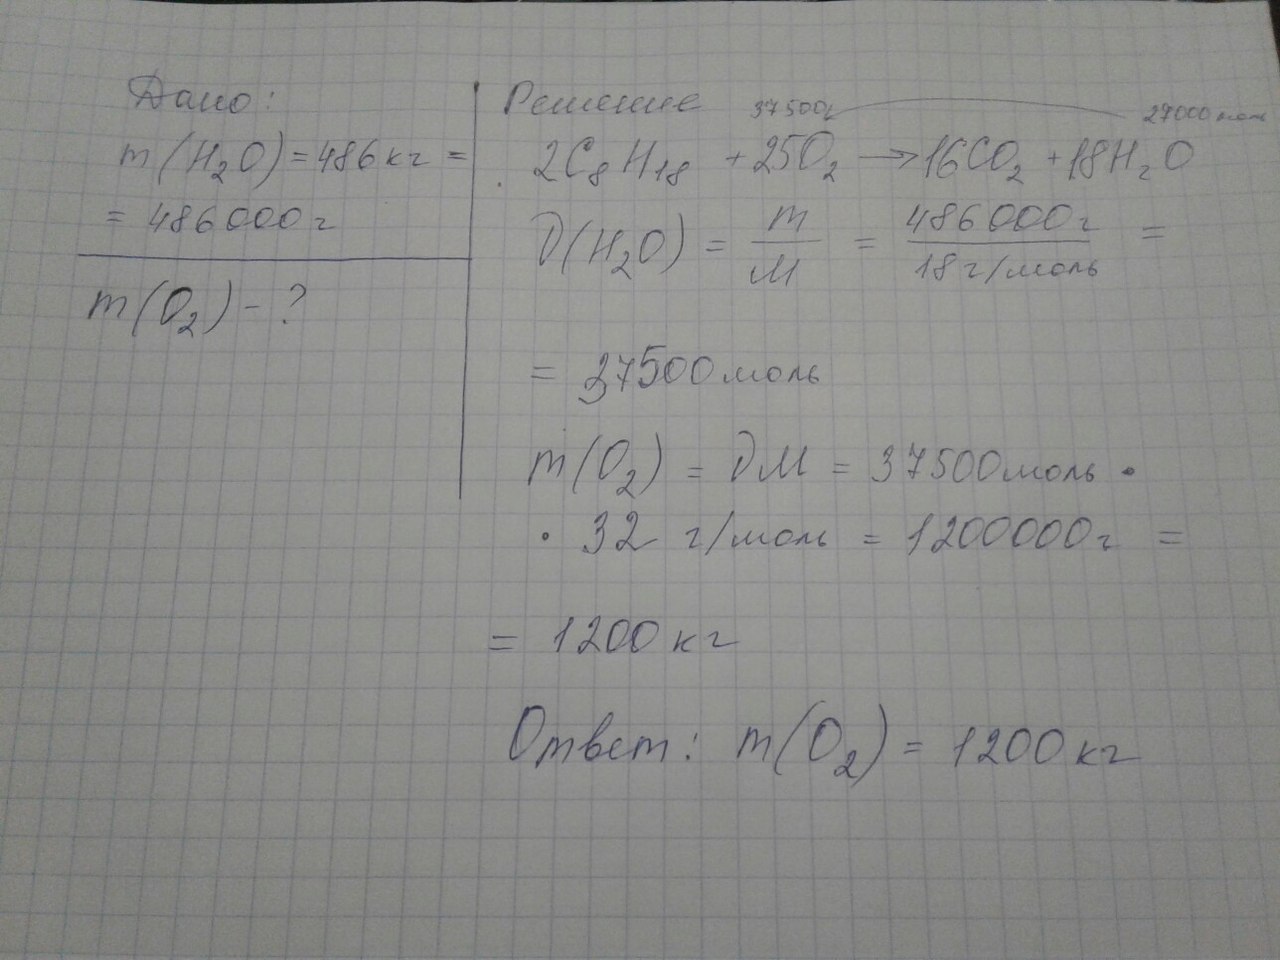 Дано:
m(H₂O) = 486 кг =
= 486000 г
m(O₂) - ?
Решение
37500 27000 моль
2C₈H₁₈ + 25O₂ → 16CO₂ + 18H₂O
ν(H₂O) = m/M = 486000 г/18 г/моль =
= 37500 моль
m(O₂) = νM = 37500 моль ·
· 32 г/моль = 1200000 г =
= 1200 кг
Ответ: m(O₂) = 1200 кг